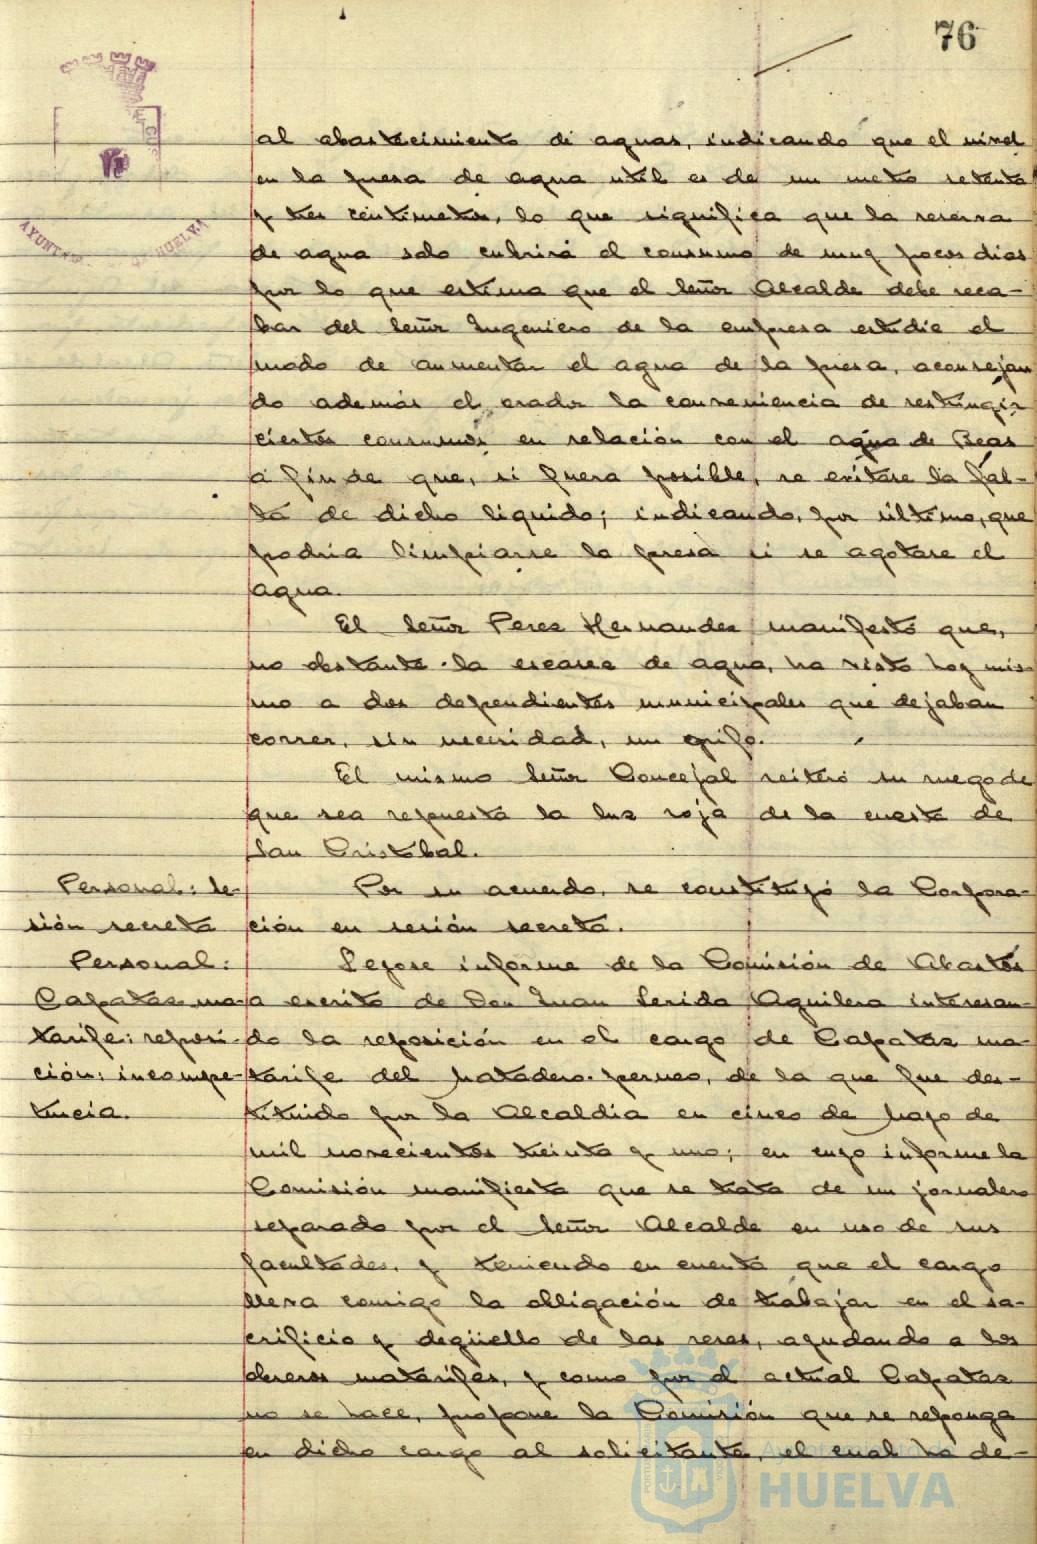 76
AYUNT HUELVA
al abastecimiento de aguas, indicando que el nivel
en la presa de agua util es de un metro setenta
y tres centimetros, lo que significa que la reserva
de agua solo cubrirá el consumo de muy pocos dias
por lo que estima que el Señor Alcalde debe reca-
bar del Señor Ingeniero de la empresa estudie el
modo de aumentar el agua de la presa, aconsejan
do además el orador la conveniencia de restringir
ciertos consumos en relación con el agua de Beas
a fin de que, si fuera posible, se evitase la fal-
ta de dicho liquido; indicando, por último, que
podria limpiarse la presa si se agotase el
agua.
El Señor Perez Hernandez manifestó que,
no obstante la escasez de agua, ha visto hoy mis-
mo a dos dependientes municipales que dejaban
correr, sin necesidad, un grifo.
El mismo Señor Concejal reiteró su ruego de
que sea repuesta la luz roja de la cuesta de
San Cristobal.
Personal: Se-
sión secreta
Por su acuerdo, se constituyó la Corpora-
ción en sesión secreta.
Personal:
Capataz ma-
tarife: reposi-
ción: incompe-
tencia.
Leyose informe de la Comisión de Abastos
a escrito de Don Juan Lerida Aguilera interesan-
do la reposición en el cargo de Capataz ma-
tarife del Matadero perneo, de la que fue des-
tituido por la Alcaldia en cinco de Mayo de
mil novecientos treinta y uno; en cuyo informe la
Comisión manifiesta que se trata de un jornalero
separado por el Señor Alcalde en uso de sus
facultades, y teniendo en cuenta que el cargo
lleva comigo la obligación de trabajar en el sa-
crificio y degüello de las reses, ayudando a los
obreros matarifes, y como por el actual Capataz
no se hace, propone la Comisión que se reponga
en dicho cargo al solicitante, el cual ha de-
Ayuntamiento de
HUELVA